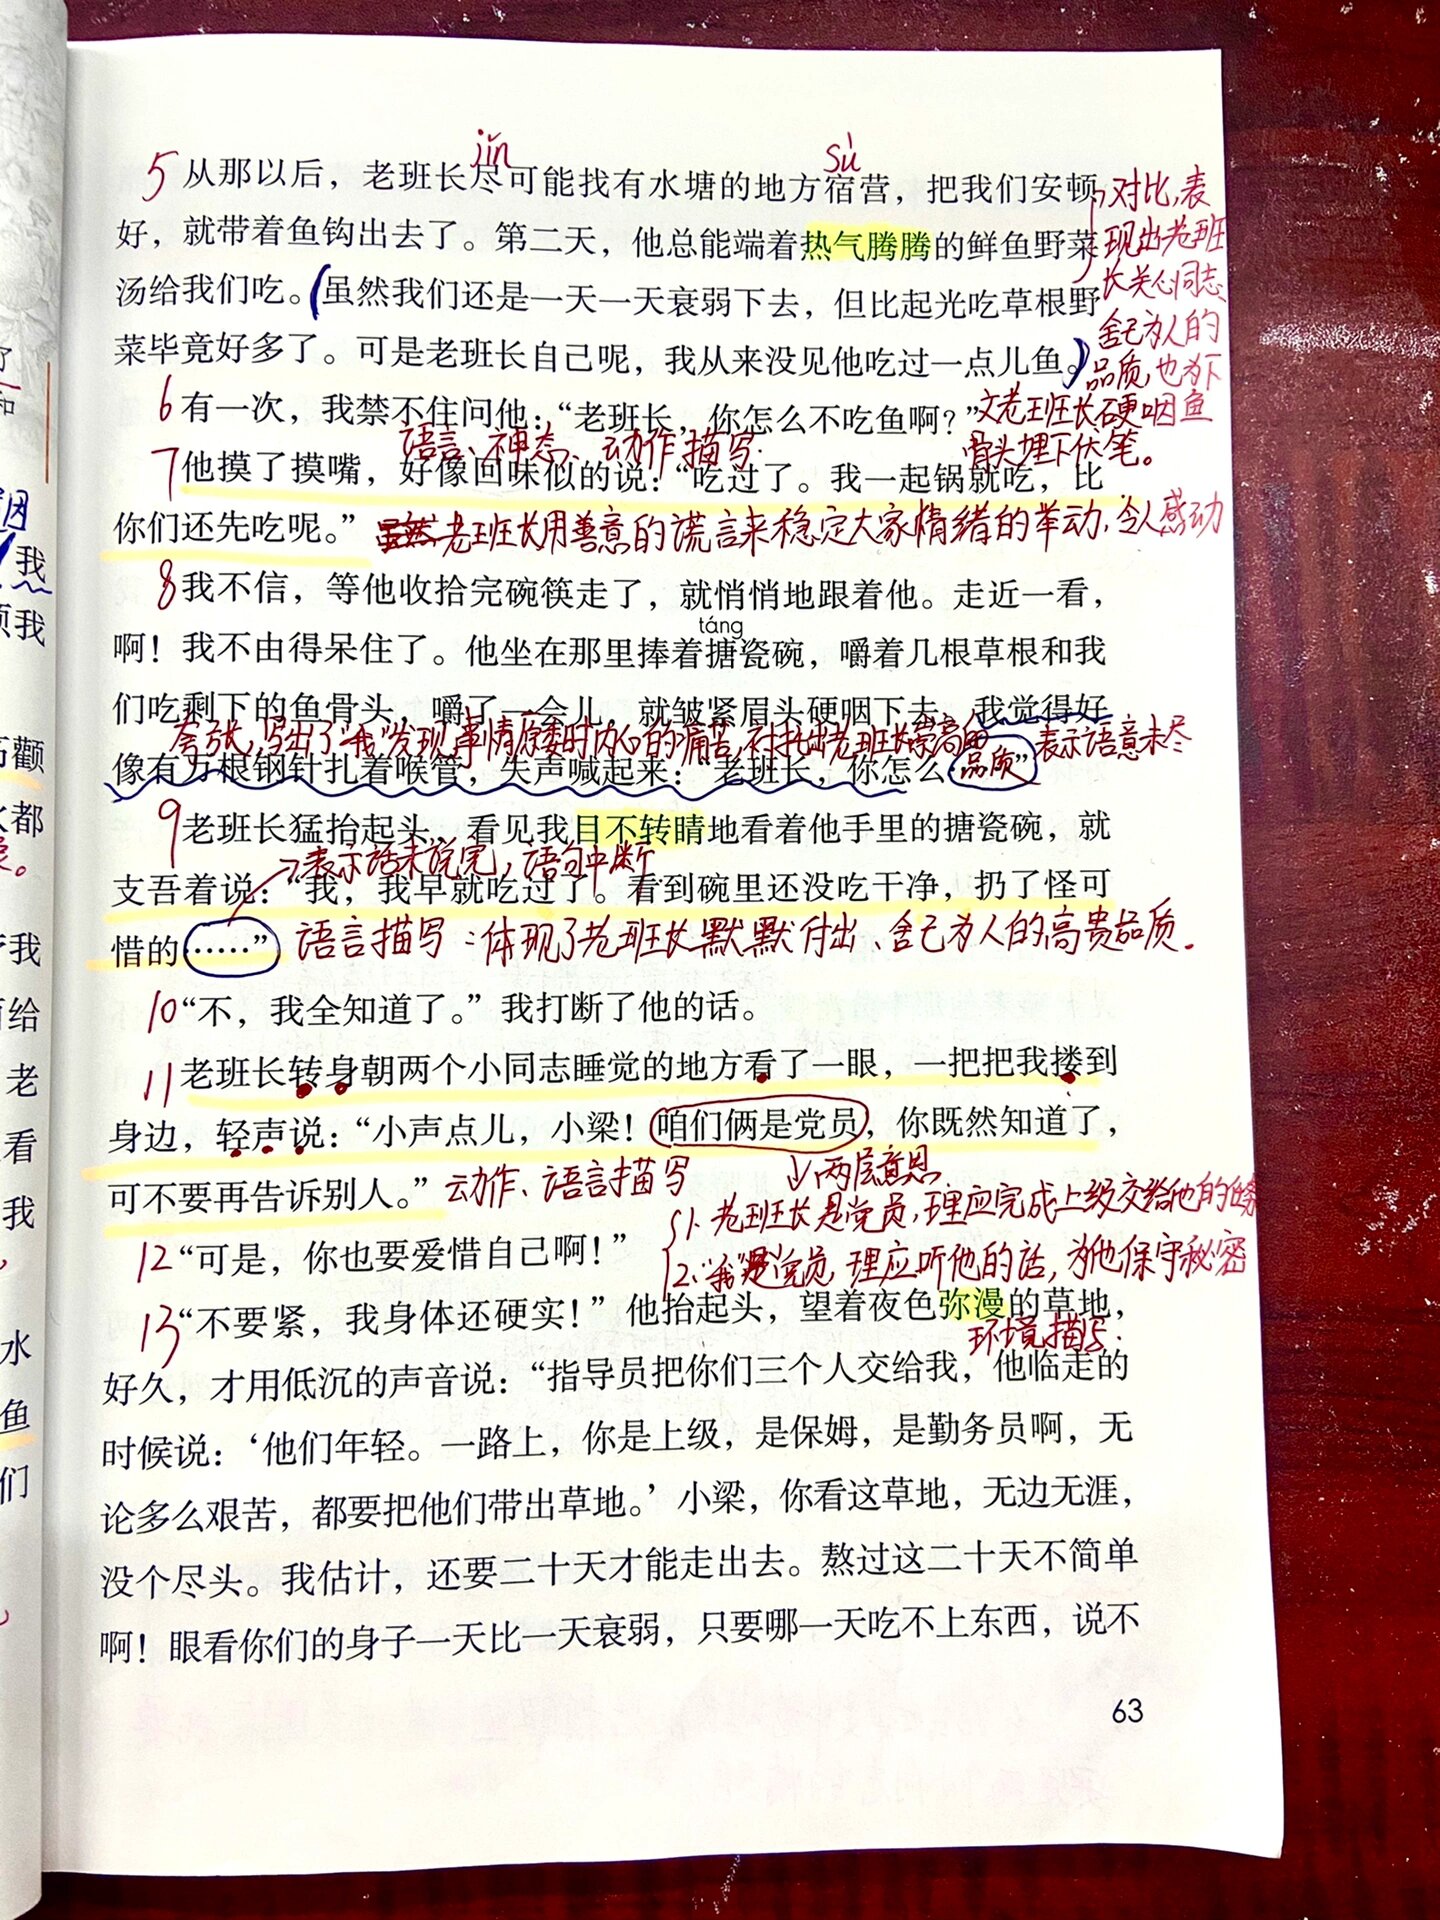 jǐn
sù
5 从那以后，老班长尽可能找有水塘的地方宿营，把我们安顿
好，就带着鱼钩出去了。第二天，他总能端着热气腾腾的鲜鱼野菜
汤给我们吃。(虽然我们还是一天一天衰弱下去，但比起光吃草根野
菜毕竟好多了。可是老班长自己呢，我从来没见他吃过一点儿鱼。)
对比，表
现出老班
长关心同志、
舍己为人的
品质，也为下
文老班长硬咽鱼
骨头埋下伏笔。
6 有一次，我禁不住问他：“老班长，你怎么不吃鱼啊？”
语言、神态、动作描写.
7 他摸了摸嘴，好像回味似的说：“吃过了。我一起锅就吃，比
你们还先吃呢。”
老班长用善意的谎言来稳定大家情绪的举动，令人感动
8 我不信，等他收拾完碗筷走了，就悄悄地跟着他。走近一看，
táng
啊！我不由得呆住了。他坐在那里捧着搪瓷碗，嚼着几根草根和我
们吃剩下的鱼骨头，嚼了一会儿，就皱紧眉头硬咽下去。我觉得好
夸张，写出了“我”发现事情原委时内心的痛苦，衬托出老班长崇高的
品质
表示语意未尽
像有万根钢针扎着喉管，失声喊起来：“老班长，你怎么……”
9 老班长猛抬起头，看见我目不转睛地看着他手里的搪瓷碗，就
表示话未说完，语句中断
支吾着说：“我，我早就吃过了。看到碗里还没吃干净，扔了怪可
惜的……”
语言描写：体现了老班长默默付出、舍己为人的高贵品质.
10 “不，我全知道了。”我打断了他的话。
11 老班长转身朝两个小同志睡觉的地方看了一眼，一把把我搂到
身边，轻声说：“小声点儿，小梁！咱们俩是党员，你既然知道了，
可不要再告诉别人。”
动作、语言描写
两层意思
1. 老班长是党员，理应完成上级交给他的任务
2. “我”是党员，理应听他的话，为他保守秘密
12 “可是，你也要爱惜自己啊！”
13 “不要紧，我身体还硬实！”他抬起头，望着夜色弥漫的草地，
环境描写.
好久，才用低沉的声音说：“指导员把你们三个人交给我，他临走的
时候说：‘他们年轻。一路上，你是上级，是保姆，是勤务员啊，无
论多么艰苦，都要把他们带出草地。’小梁，你看这草地，无边无涯，
没个尽头。我估计，还要二十天才能走出去。熬过这二十天不简单
啊！眼看你们的身子一天比一天衰弱，只要哪一天吃不上东西，说不
63